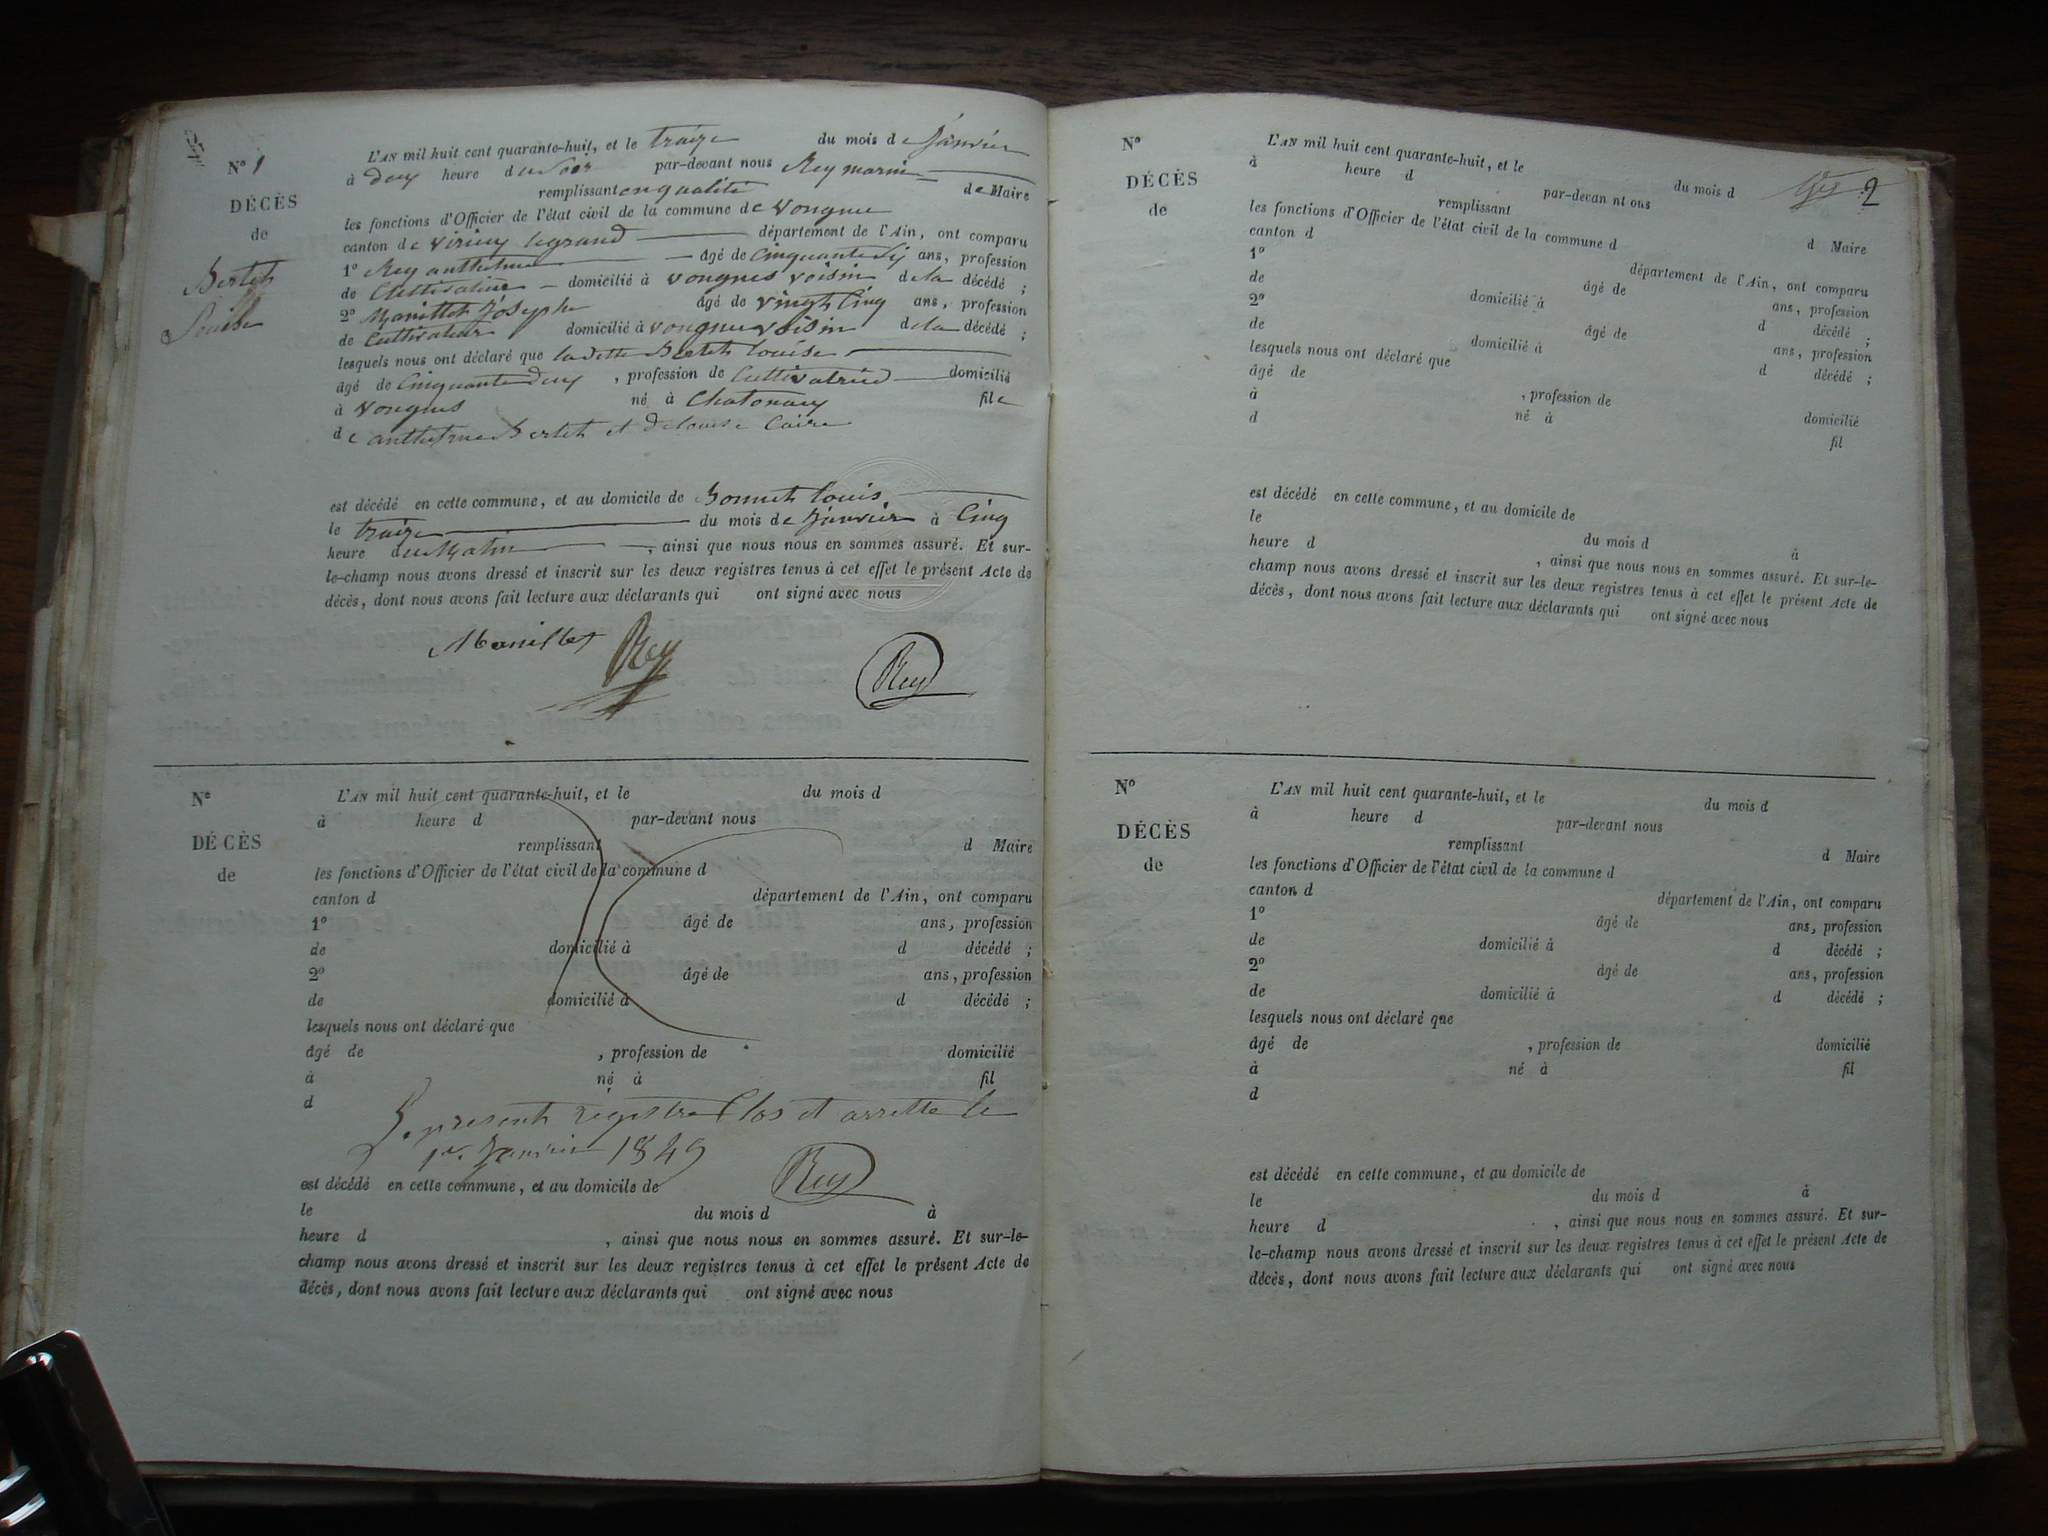 N° 1
DÉCÈS
de
Bertet
Louise
L'AN mil huit cent quarante-huit, et le traize du mois de janvier
à deux heure du soir par-devant nous Rey marin
remplissant en qualité de Maire
les fonctions d'Officier de l'état civil de la commune de vongnes
canton de virieu legrand département de l'Ain, ont comparu
1° Rey anthelme âgé de cinquante six ans, profession
de Cultivateur domicilié à vongnes voisin de la décédé ;
2° Manillet Joseph âgé de vingt cinq ans, profession
de Cultivateur domicilié à vongnes voisin de la décédé ;
lesquels nous ont déclaré que laditte Bertet louise
âgé de Cinquante deux , profession de Cultivatrice domicilié
à vongnes né à Chatonay file
de anthelme Bertet et de louise Caire
est décédé en cette commune, et au domicile de Bonnet louis
le traize du mois de janvier à Cinq
heure du Matin , ainsi que nous nous en sommes assuré. Et sur-
le-champ nous avons dressé et inscrit sur les deux registres tenus à cet effet le présent Acte de
décès, dont nous avons fait lecture aux déclarants qui ont signé avec nous
Manillet Rey Rey
N°
DÉCÈS
de
L'AN mil huit cent quarante-huit, et le du mois d
à heure d par-devant nous
remplissant d Maire
les fonctions d'Officier de l'état civil de la commune d
canton d département de l'Ain, ont comparu
1° âgé de ans, profession
de domicilié à d décédé ;
2° âgé de ans, profession
de domicilié à d décédé ;
lesquels nous ont déclaré que
âgé de , profession de domicilié
à né à fil
d
Le present régistre Clos et arretté le
1er. Janvier 1849
Rey
est décédé en cette commune, et au domicile de
le du mois d à
heure d , ainsi que nous nous en sommes assuré. Et sur-le-
champ nous avons dressé et inscrit sur les deux registres tenus à cet effet le présent Acte de
décès, dont nous avons fait lecture aux déclarants qui ont signé avec nous
2
N°
DÉCÈS
de
L'AN mil huit cent quarante-huit, et le du mois d
à heure d par-devan nt ous
remplissant d Maire
les fonctions d'Officier de l'état civil de la commune d
canton d département de l'Ain, ont comparu
1° âgé de ans, profession
de domicilié à d décédé ;
2° âgé de ans, profession
de domicilié à d décédé ;
lesquels nous ont déclaré que
âgé de , profession de domicilié
à né à fil
d
est décédé en cette commune, et au domicile de
le du mois d à
heure d , ainsi que nous nous en sommes assuré. Et sur-le-
champ nous avons dressé et inscrit sur les deux registres tenus à cet effet le présent Acte de
décès, dont nous avons fait lecture aux déclarants qui ont signé avec nous
N°
DÉCÈS
de
L'AN mil huit cent quarante-huit, et le du mois d
à heure d par-devant nous
remplissant d Maire
les fonctions d'Officier de l'état civil de la commune d
canton d département de l'Ain, ont comparu
1° âgé de ans, profession
de domicilié à d décédé ;
2° âgé de ans, profession
de domicilié à d décédé ;
lesquels nous ont déclaré que
âgé de , profession de domicilié
à né à fil
d
est décédé en cette commune, et au domicile de
le du mois d à
heure d , ainsi que nous nous en sommes assuré. Et sur-
le-champ nous avons dressé et inscrit sur les deux registres tenus à cet effet le présent Acte de
décès, dont nous avons fait lecture aux déclarants qui ont signé avec nous